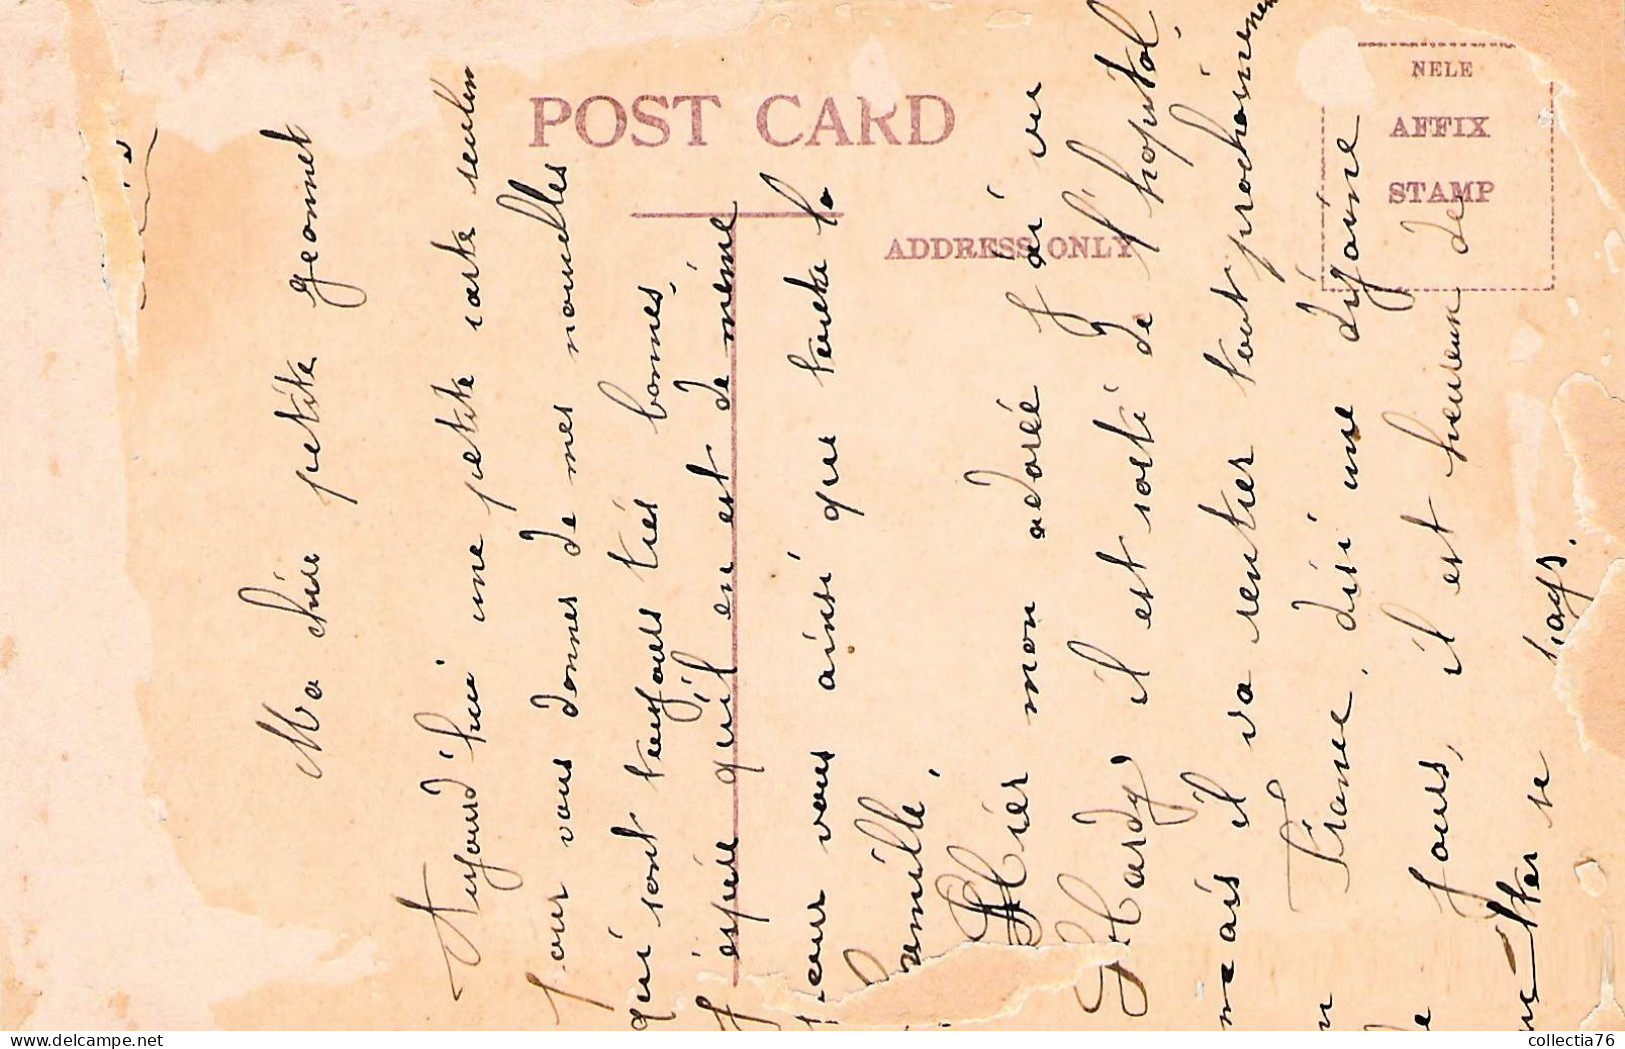 POST CARD
ADDRESS ONLY
NELE
AFFIX
STAMP
Ma chère petite Jeannet
Aujourd'hui une petite carte seulem
pour vous donner de mes nouvelles
qui sont toujours très bonnes,
J'espère qu'il en est de même
pour vous ainsi que toute la
famille.
Hier mon adoré j'ai vu
Hardy il est sorti de l'hopital,
mais il va rentrer tout prochainemen
n France, disi une dizaine
de jours, il est heureux de
se
www.delcampe.net
collectia76